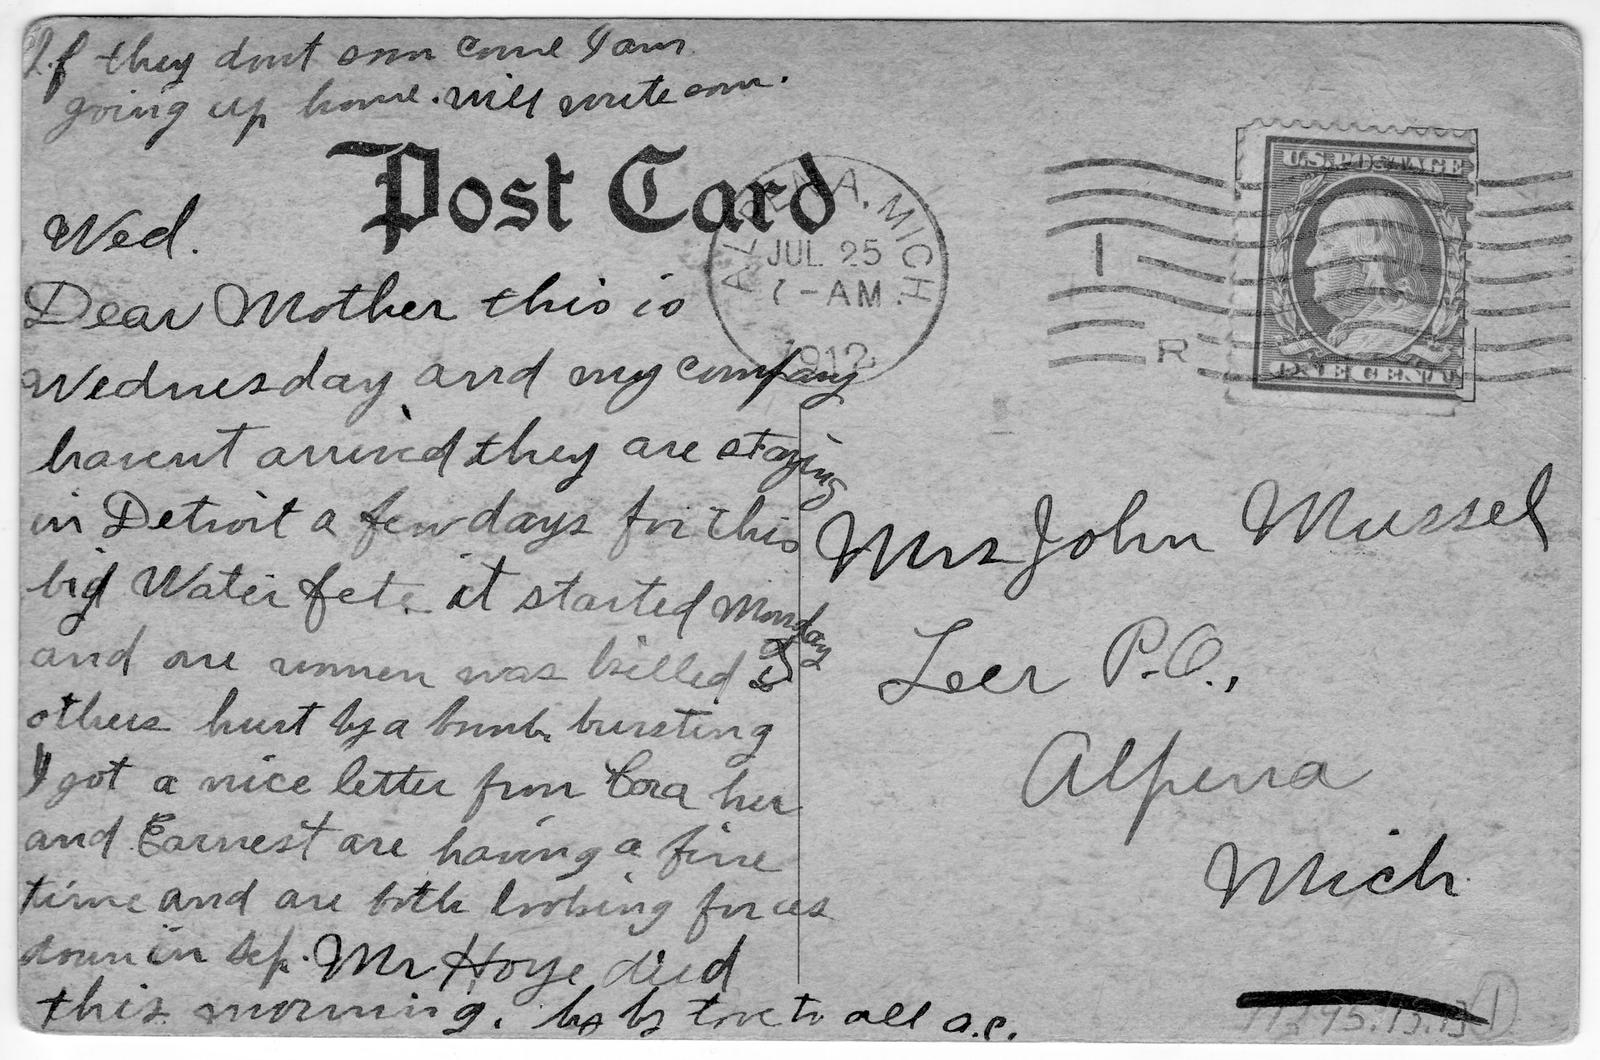 If they dont soon come I am
going up home. will write soon.
Post Card
ALPENA, MICH.
JUL 25
7-AM
1912
1
R
U.S. POSTAGE
ONE CENT
Wed.
Dear Mother this is
Wednesday and my company
havent arrived they are staying
in Detroit a few days for this
big Water fete. it started Monday
and one women was killed &
others hurt by a bomb bursting
I got a nice letter from Cora her
and Earnest are having a fine
time and are both looking for us
down in Sep. Mr Hoye died
this morning. by by love to all a.c.
Mrs John Mussel
Leer P.O.,
Alpena
Mich.